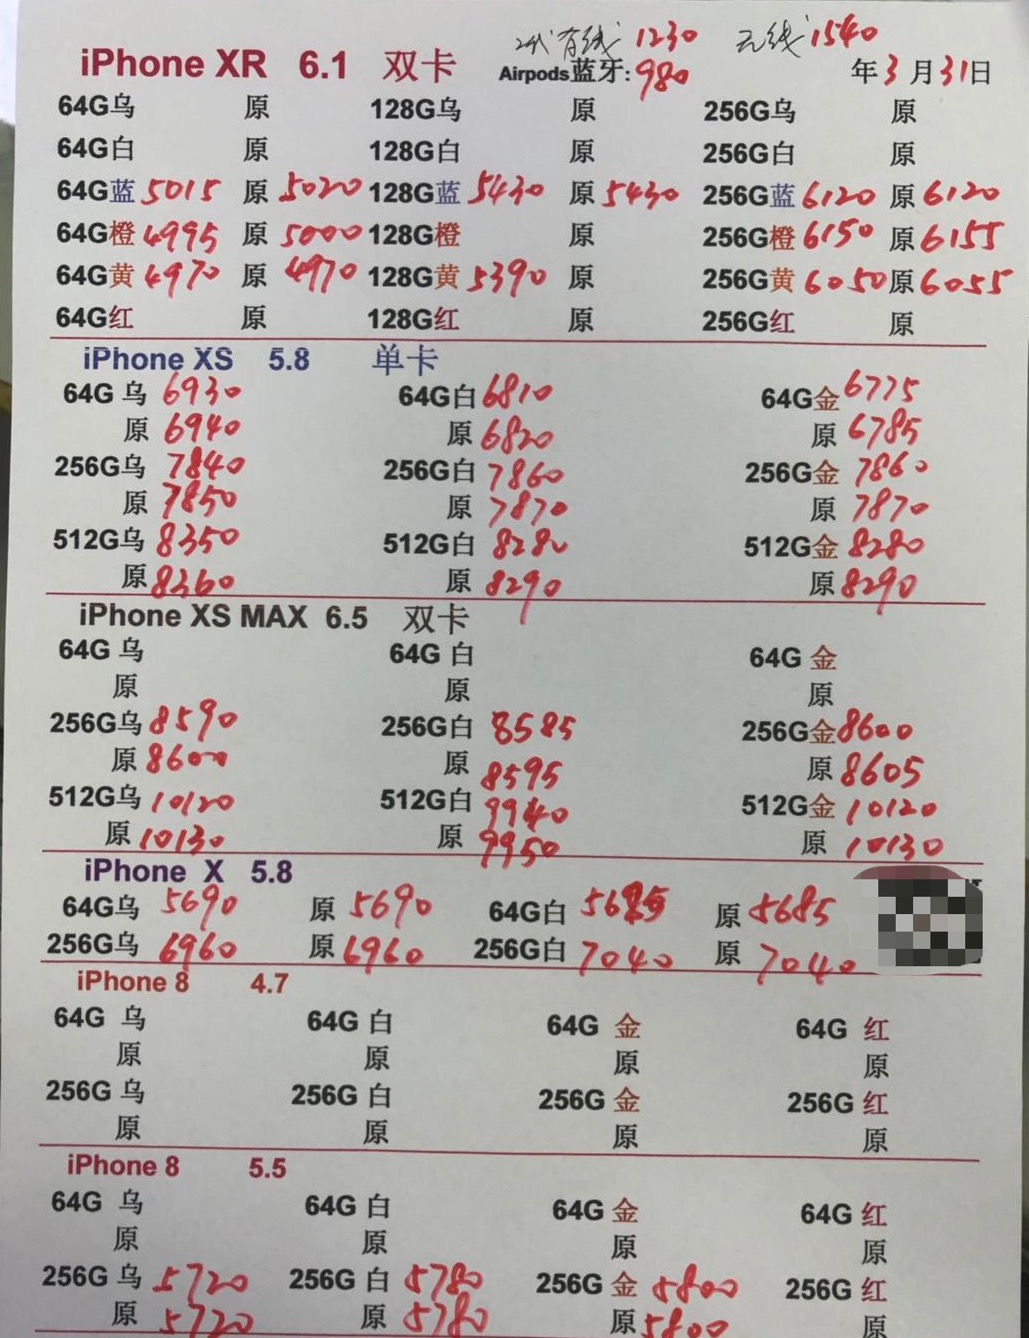 2代有线 1230 无线 1540
iPhone XR 6.1 双卡 Airpods蓝牙:980 年3月31日
64G乌 原 128G乌 原 256G乌 原
64G白 原 128G白 原 256G白 原
64G蓝 5015 原 5020 128G蓝 5430 原 5430 256G蓝 6120 原 6120
64G橙 4995 原 5000 128G橙 原 256G橙 6150 原 6155
64G黄 4970 原 4970 128G黄 5390 原 256G黄 6050 原 6055
64G红 原 128G红 原 256G红 原
iPhone XS 5.8 单卡
64G 乌 6930 64G白 6810 64G金 6775
原 6940 原 6820 原 6785
256G乌 7840 256G白 7860 256G金 7860
原 7850 原 7870 原 7870
512G乌 8350 512G白 8280 512G金 8280
原 8360 原 8290 原 8290
iPhone XS MAX 6.5 双卡
64G 乌 64G 白 64G 金
原 原 原
256G乌 8590 256G白 8585 256G金 8600
原 8600 原 8595 原 8605
512G乌 10120 512G白 9940 512G金 10120
原 10130 原 9950 原 10130
iPhone X 5.8
64G乌 5690 原 5690 64G白 原 5685
256G乌 6960 原 6960 256G白 7040 原 7040
iPhone 8 4.7
64G 乌 64G 白 64G 金 64G 红
原 原 原 原
256G 乌 256G 白 256G 金 256G 红
原 原 原 原
iPhone 8 5.5
64G 乌 64G 白 64G 金 64G 红
原 原 原 原
256G 乌 5720 256G 白 5780 256G 金 5800 256G 红
原 5720 原 5780 原 5800 原